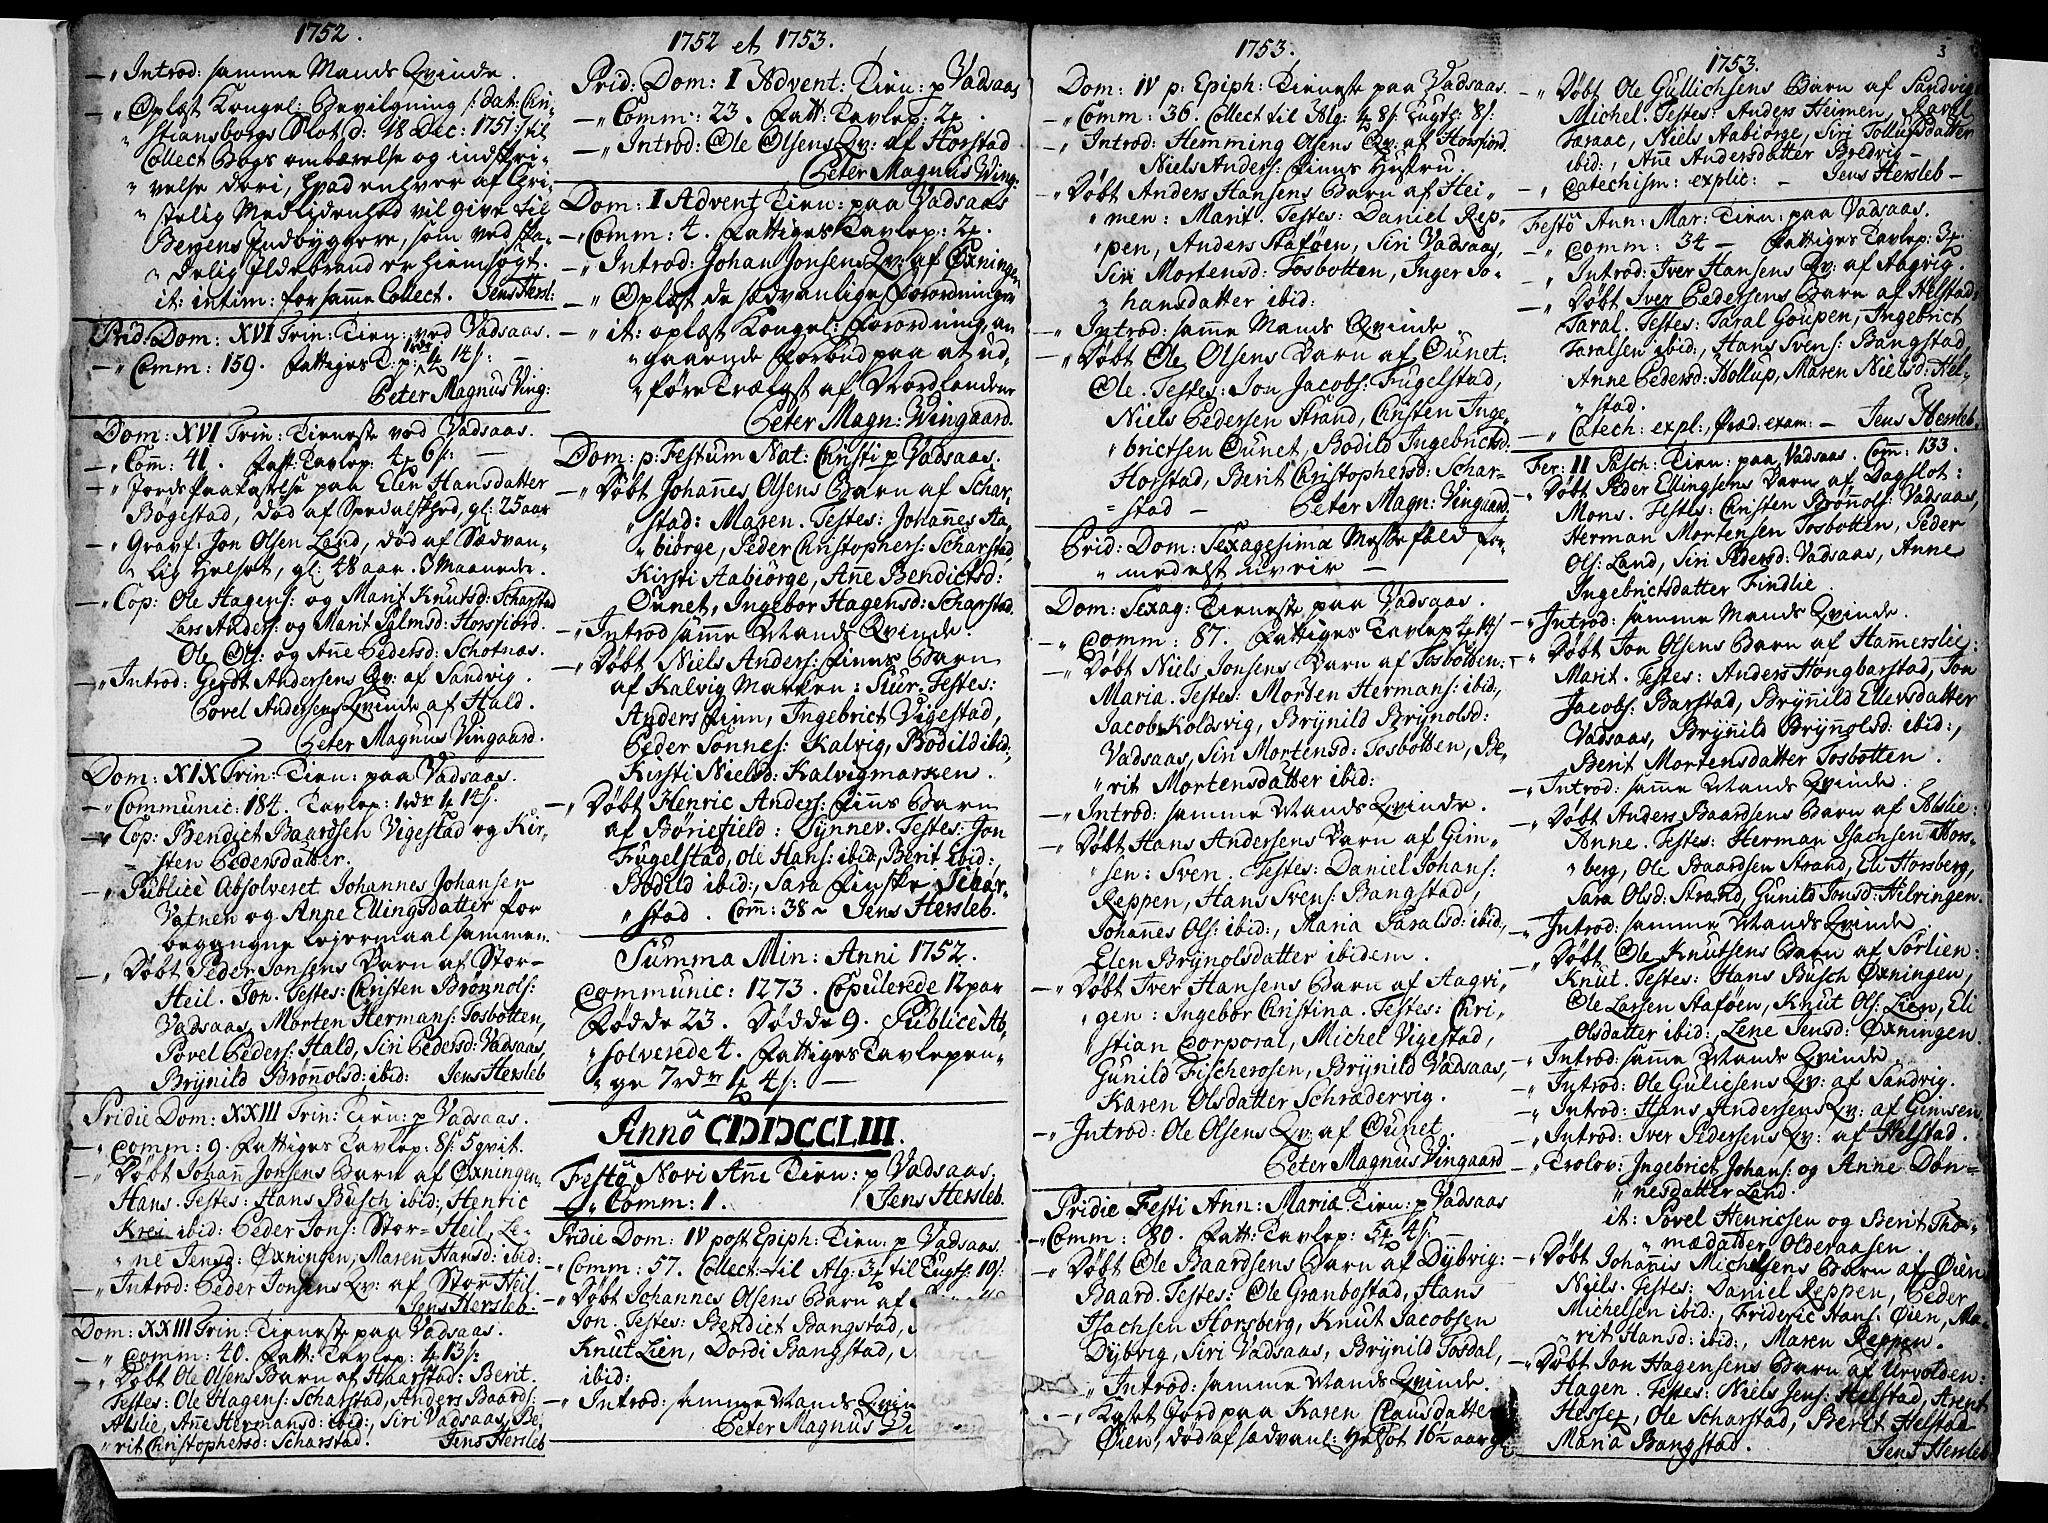 1752.
–„ Introd: samme Mands Qvinde.
–„ Oplæst Kongel: Bevilgning /: dat: Chri-
„ stiansborgs Slot d: 18 Dec: 1751 :/ til
Collect Bogs ombærelse og indskri-
„ velse deri, hvad enhver af Chri-
„ stelig Medlidenhed vil give til
Bergens Indbyggere, som ved ska-
„ delig Ildebrand er hiemsøgt.
it: intim: for samme Collect. Jens Hersl:
Prid: Dom: XVI Trin: Tien: ved Vadsaas.
–„ Comm: 159. Fattiges T: p: 14 /:
Peter Magnus Ving:
Dom: XVI Trin: Tieneste ved Vadsaas.
–„ Com: 41. Fatt: Tavlep: 4 6 /:
–„ Jords paakastelse paa Elen Hansdatter
Bogestad, död af Spedalskhed, gl: 25 aar
–„ Gravf: Jon Olsen Land, död af Sædvan-
„ lig Helsot, gl: 48 aar. 3 Maaneder.
–„ Cop: Ole Hagens: og Marit Knutsd: Scharstad
Lars Anders: og Marit Palmsd: Horsfiord.
Ole Ols: og Anne Pedersd: Schotnæs.
–„ Introd: Gerdt Andersens Qv: af Sandvig.
Povel Andersens Qvinde af Hald.
Peter Magnus Vingaard.
Dom: XIX Trin: Tien: paa Vadsaas.
–„ Communic: 184. Tavlep: 1 rdr 14 /.
–„ Cop: Bendict Baardsen Vigestad og Kir-
„ sten Pedersdatter.
–„ Publicè Absolveret Johannes Johansen
Vatnen og Anne Ellingsdatter for
begangne Lejermaal sammen.
–„ Döbt Peder Jonsens Barn af Stor-
Heil. Jon. Testes: Christen Brönnols:
Vadsaas, Morten Hermans: Tosbotten,
Povel Peders: Hald, Siri Pedersd: Vadsaas,
Brÿnild Brönnolsd: ibid: Jens Hersleb
Pridie Dom: XXIII Trin: Tien: p Vadsaas.
–„ Comm: 9. Fattiges Tavlep: 8 /: 5 qvit.
–„ Döbt Johan Jonsens Barn af Öxningen.
Hans. Testes: Hans Busch ibid:, Henric
Krei ibid: Peder Jons: Stor-Heil. Le-
„ ne Jensd: Öxningen, Maren Hansd: ibid:
–„ Introd: Peder Jonsens Qv: af Stor Heil.
Jens Hersleb.
Dom: XXIII Trin: Tieneste paa Vadsaas.
–„ Comm: 40. Fatt: Tavlep: 4 13 /:
–„ Döbt Ole Olsens Barn af Haarstad: Berit.
Testes: Ole Hagens: Scharstad, Anders Baards:
Alslie, Anne Hermansd: ibid:, Siri Vadsaas, Be-
„ rit Christophersd: Scharstad. Jens Hersleb
1752 et 1753.
Prid: Dom: I Advent: Tien: p Vadsaas
–„ Comm: 23. Fatt: Tavlep: 2
–„ Introd: Ole Olsens Qv: af Horstad
Peter Magnus Wing:
Dom: I Advent Tien: paa Vadsaas
–„ Comm: 4. Fattiges Tavlep: 2
–„ Introd: Johan Jonsens Qv: af Öxningen
–„ Oplæst de sædvanlige Forordninger
–„ it: oplæst Kongel: Forordning, an
„ gaaende Forbud paa at ud-
„ före Trælast af Nordlandene
Peter Magn: Wingaard.
Dom: p: Festum Nat: Christi p Vadsaas.
–„ Döbt Johannes Olsens Barn af Schar-
„ stad: Maren. Testes: Johannes Aa-
„ biörge, Peder Christophers: Scharstad,
Kirsti Aabiörge, Anne Bendictsd:
Öunet, Ingebor Hagensd: Scharstad.
–„ Introd samme Mands Qvinde.
–„ Döbt Niels Anders: Finns Barn
af Kalvig Marken: Siur. Testes:
Anders Finn, Ingebrict Vigestad,
Peder Sonnes: Kalvig, Bodild ibid:,
Kirsti Nielsd: Kalvigmarken.
–„ Döbt Henric Anders: Finns Barn
af Böriefield: Synnev. Testes: Jon
Fugelstad, Ole Hans: ibid, Berit ibid:,
Bodild ibid:, Sara Finske Schar-
„ stad. Com: 38 ~ Jens Hersleb.
Summa Min: Anni 1752.
Communic: 1273. Copulerede 12 par
Födde 23. Dödde 9. Publicè Ab-
„ solverede 4. Fattiges Tavlepen-
„ ge 7 rdr 1 4 /: —
Annô CIƆIƆCCLIII.
Festô Novi Anni Tien: p Vadsaas,
–„ Comm: 1. Jens Hersleb.
Pridie Dom: IV post Epiph: Tien: p Vadsaas
–„ Comm: 57. Collect: til Alg: 3 til Tugts: 10 /:
–„ Döbt Johannes Olsens Barn af
Jon. Testes: Bendict Bangstad,
Knut Lien, Dordi Bangstad, Maria
ibid:
–„ Introd: samme Mands Qvin
Peter Magnus Vingaard
1753.
Dom: IV p: Epiph: Tieneste paa Vadsaas.
–„ Comm: 36. Collect til Alg: 4 8 /: Tugts: 8 /:
–„ Introd: Hemming Olsens Qv: af Horsfiord.
Niels Anders: Finns Hustru
–„ Döbt Anders Hansens Barn af Hei-
„ men: Marit. Testes: Daniel Rep-
„ pen, Anders Staföen, Siri Vadsaas,
Siri Mortensd: Tosbotten, Inger Jo-
„ hansdatter ibid:
–„ Introd: samme Mands Qvinde
–„ Döbt Ole Olsens Barn af Öunet:
Ole. Testes: Jon Jacobs: Fugelstad,
Niels Pedersen Strand, Christen Inge-
„ brictsen Öunet, Bodild Ingebrictsd:
Horstad, Berit Christophersd: Schar-
„ stad – Peter Magn: Vingaard.
Prid: Dom: Sexagesima Messefald for-
„ medelst uveir –
Dom: Sexag: Tieneste paa Vadsaas.
–„ Comm: 87. Fattiges Tavlep 4 14 /
–„ Döbt Niels Jonsens Barn af Tosbotten:
Maria. Testes: Morten Hermans: ibid:,
Jacob Koldsvig, Brÿnild Brÿnolsd:
Vadsaas, Siri Mortensd: Tosbotten, Be-
„ rit Mortensdatter ibid:
–„ Introd: samme Mands Qvinde.
–„ Döbt Hans Andersens Barn af Gim-
„ sen: Sven. Testes: Daniel Johans:
Reppen, Hans Svens: Bangstad,
Johannes Ols: ibid:, Maria Taralsd: ibid:,
Elen Brÿnolsdatter ibidem.
–„ Döbt Iver Hansens Barn af Aagvi-
„ gen: Ingebor Christina. Testes: Chri-
„ stian Corporal, Michel Vigestad,
Gunild Fischerosen, Brÿnild Vadsaas,
Karen Olsdatter Schrædervig.
–„ Introd: Ole Olsens Qv: af Öunet.
Peter Magnus Vingaard
Pridie Festi Ann: Mariæ Tien: p Vadsaas
–„ Comm: 80. Fatt: Tavlep: 5 4 /:
–„ Döbt Ole Baardsens Barn af Dÿbvig:
Baard. Testes: Ole Granbostad, Hans
Hachsen Horsberg, Knut Jacobsen
Dÿbvig, Siri Vadsaas, Brÿnild Tosdal,
–„ Introd: samme Mands Qvinde.
–„ Kastet Jord paa Karen Clausdatter
Öien, död af sædvanl: Helsot 16½ aar
3
1753.
–„ Döbt Ole Gullichsens Barn af Sandvig
Michel. Testes: Anders Heimen, Parel
Taraac, Niels Aabiörge, Siri Tollufsdatter
ibid:, Anne Andersdatter Bredvig –
–„ Catechism: explic: – Jens Hersleb –
Festô Ann: Mar: Tien: paa Vadsaas.
–„ Comm: 34 – Fattiges Tavlep: 3
–„ Introd: Iver Hansens Qv: af Aagvig.
–„ Döbt Iver Pedersens Barn af Helstad:
Taral. Testes: Taral Goupen, Ingebrict
Taralsen ibid:, Hans Svens: Bangstad,
Anne Pedersd: Hollup, Maren Nielsd: Hel-
„ stad.
–„ Catech: expl:, Præd: exam: – Jens Hersleb.
Fer: II Pasch: Tien: paa Vadsaas. Com: 133.
–„ Döbt Peder Ellingsens Barn af Dagslot:
Mons. Testes: Christen Brönnols: Vadsaas,
Herman Mortensen Tosbotten, Peder
Ols: Land, Siri Pedersd: Vadsaas, Anne
Ingebrictsdatter Findlie.
–„ Introd: samme Mands Qvinde.
–„ Döbt Jon Olsens Barn af Hammerslie:
Marit. Testes: Anders Hongbarstad, Jon
Jacobs: Barstad, Brÿnild Ellevsdatter
Vadsaas, Brÿnild Brÿnnolsd: ibid:,
Berit Mortensdatter Tosbotten.
–„ Introd: samme Mands Qvinde.
–„ Döbt Anders Baardsens Barn af Alslie:
Anne. Testes: Herman Hachsen Hors-
„ berg, Ole Baardsen Strand, Eli Horsberg,
Sara Olsd: Strand, Gunild Jonsd: Helringen.
–„ Introd: samme Mands Qvinde
–„ Döbt Ole Knutsens Barn af Sörlien:
Knut. Testes: Hans Busch Öxningen,
Ole Larsen Staföen, Knut Ols: Lien, Eli
Olsdatter ibid:, Lene Jensd: Öxningen.
–„ Introd: samme Mands Qvinde.
–„ Introd: Ole Guliesens Qv: af Sandvig.
–„ Introd: Hans Andersens Qv: af Gimsen
–„ Introd: Iver Pedersens Qv: af Helstad.
–„ Trolov: Ingebrict Johans: og Anne Dön-
„ nesdatter Land.
it: Povel Henricsen og Berit Tho-
„ mædatter Olderaasen.
–„ Döbt Johannis Michelsens Barn af Öien
Niels. Testes: Daniel Reppen, Peder
Michelsen ibid:, Frideric Hans: Öien, Ma-
„ rit Hansd: ibid:, Maren Reppen.
–„ Döbt Jon Hagensens Barn af Urvolden:
Hagen. Testes: Niels Jens: Helstad, Arent
Hesses, Ole Scharstad, Berit Helstad
Maria Bangstad. Jens Hersleb